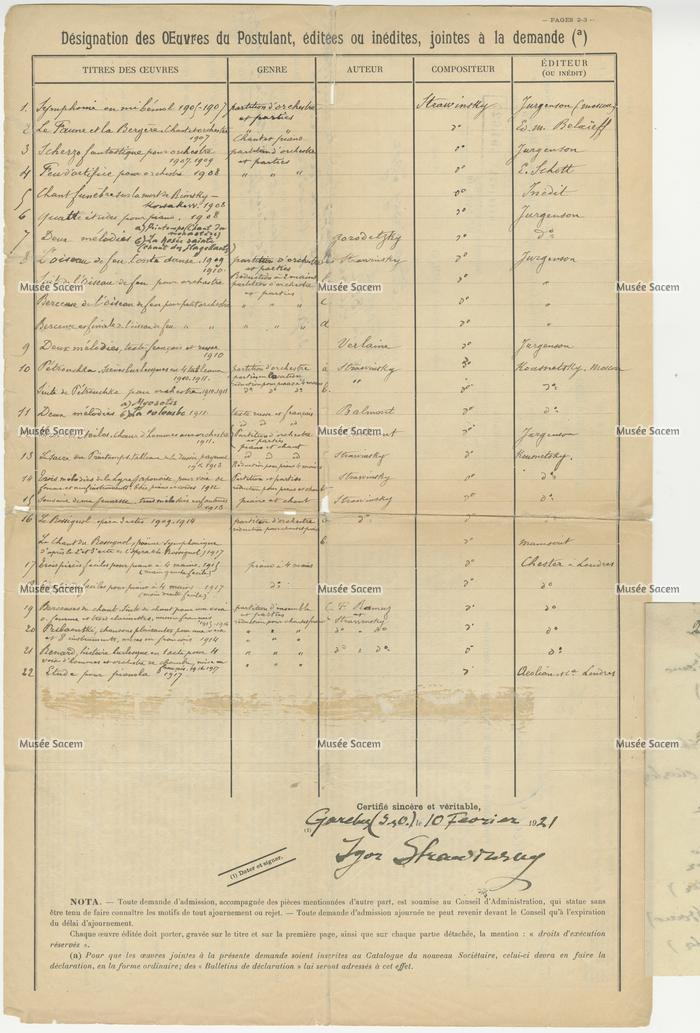 — PAGES 2-3 —
Désignation des Œuvres du Postulant, éditées ou inédites, jointes à la demande (a)
TITRES DES ŒUVRES GENRE AUTEUR COMPOSITEUR ÉDITEUR (OU INÉDIT)
1. Symphonie en mi bémol 1905-1907 partition d'orchestre et parties Strawinsky Jurgenson (Moscou)
2 Le Faune et la Bergère chant et orchestre 1907 Chant et piano do Ed. M. Belaïeff
3 Scherzo fantastique pour orchestre 1907-1908 partition d'orchestre et parties do Jurgenson
4 Feu d'artifice pour orchestre 1908 " " " do E. Schott
5 Chant funèbre sur la mort de Rimsky-Korsakow. 1908 do Inédit
6 quatre études pour piano. 1908 do Jurgenson
7 Deux mélodies a) Printemps (Chant du monastère) b) La rosée sainte (chant des flagellants) Gorodetzky do do
8 L'oiseau de feu Conte dansé. 1909 1910. partition d'orchestre et parties Strawinsky do Jurgenson
Suite de l'oiseau de feu pour orchestre partition d'orchestre et parties do "
Berceuse de l'oiseau de feu pour petit orchestre " " " c do "
Berceuse et finale de l'oiseau de feu " " " " d do "
9 Deux mélodies, texte français et russe 1910 Verlaine do Jurgenson
10 Pétrouchka, Scènes burlesques en 4 tableaux 1910-1911. partition d'orchestre a Strawinsky do Koussevitzky. Moscou
Suite de Pétrouchka pour orchestre 1910-1911 do do do b. " do do
11 Deux mélodies a) Myosotis b) La colombe 1911 texte russe et français Balmont do do
Chœur d'hommes avec orchestre 1911. Partition d'orchestre et parties piano et chant do Jurgenson
13 Le Sacre du Printemps tableaux de la Russie payenne Réduction pour piano 4 mains Strawinsky do Koussevitzky.
14 Trois mélodies de la lyre japonaise pour voix de femme 1912 Partition et parties réduction pour piano et chant Strawinsky do do
15 Souvenir de ma jeunesse, trois mélodies enfantines 1913 piano et chant Strawinsky do do
16 Le Rossignol opéra 3 actes 1909-1914 partition d'orchestre a do do do
Le Chant du Rossignol, poème symphonique d'après le 2 et 3 acte de l'opéra le Rossignol) 1917 b. do manuscrit
17 Trois pièces faciles pour piano à 4 mains. 1915 (main gauche facile) piano 4 mains do Chester - Londres
faciles pour piano à 4 mains 1917 (main droite facile) do do do
19 Berceuses du chat. Suite de chant pour une voix de femme et trois clarinettes partition d'ensemble et parties C. F. Ramuz Strawinsky do do
20 Pribaoutki, chansons plaisantes pour une voix et 8 instruments, mises en français 1914 " " " do " do do do
21 Renard, histoire burlesque en 1 acte pour 4 voix d'hommes et orchestre de chambre, mise en français. 1916-1917 " " " do " do do do
22 Etude pour pianola 1917 do Aeolian Londres
Certifié sincère et véritable,
(1) Garches (S&O.) le 10 Fevrier 1921
Igor Strawinsky
(1) Dater et signer.
NOTA. — Toute demande d'admission, accompagnée des pièces mentionnées d'autre part, est soumise au Conseil d'Administration, qui statue sans
être tenu de faire connaître les motifs de tout ajournement ou rejet. — Toute demande d'admission ajournée ne peut revenir devant le Conseil qu'à l'expiration
du délai d'ajournement.
Chaque œuvre éditée doit porter, gravée sur le titre et sur la première page, ainsi que sur chaque partie détachée, la mention : « droits d'exécution
réservés ».
(a) Pour que les œuvres jointes à la présente demande soient inscrites au Catalogue du nouveau Sociétaire, celui-ci devra en faire la
déclaration, en la forme ordinaire; des « Bulletins de déclaration » lui seront adressés à cet effet.
Musée Sacem Musée Sacem Musée Sacem
Musée Sacem Musée Sacem Musée Sacem
Musée Sacem Musée Sacem Musée Sacem
Musée Sacem Musée Sacem Musée Sacem